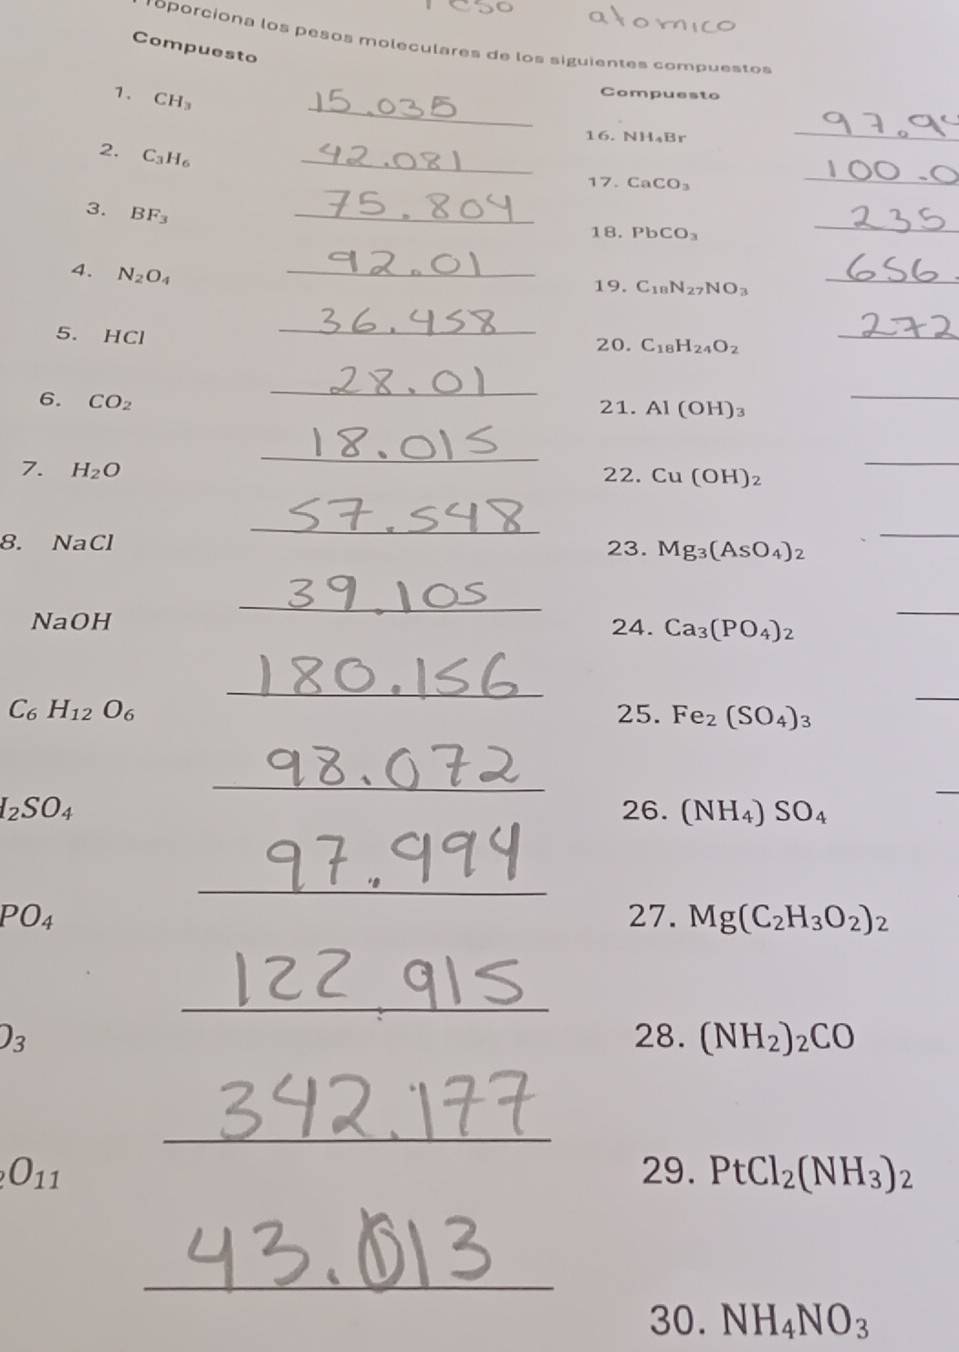 Proporciona los pesos moleculares de los siguientes compuestos
atomico
Compuesto
1. CH₃ 15.035
2. C₃H₆ 42.081
3. BF₃ 75.804
4. N₂O₄ 92.01
5. HCl 36.458
6. CO₂ 28.01
7. H₂O 18.015
8. NaCl 57.548
NaOH 39.105
C₆ H₁₂ O₆ 180.156
₂SO₄ 98.072
PO₄ 97.994
O₃ 122.915
O₁₁ 342.177
43.013
Compuesto
16. NH₄Br 97.9
17. CaCO₃ 100.0
18. PbCO₃ 235
19. C₁₈N₂₇NO₃ 656.
20. C₁₈H₂₄O₂ 272
21. Al (OH)₃
22. Cu (OH)₂
23. Mg₃(AsO₄)₂
24. Ca₃(PO₄)₂
25. Fe₂ (SO₄)₃
26. (NH₄) SO₄
27. Mg(C₂H₃O₂)₂
28. (NH₂)₂CO
29. PtCl₂(NH₃)₂
30. NH₄NO₃